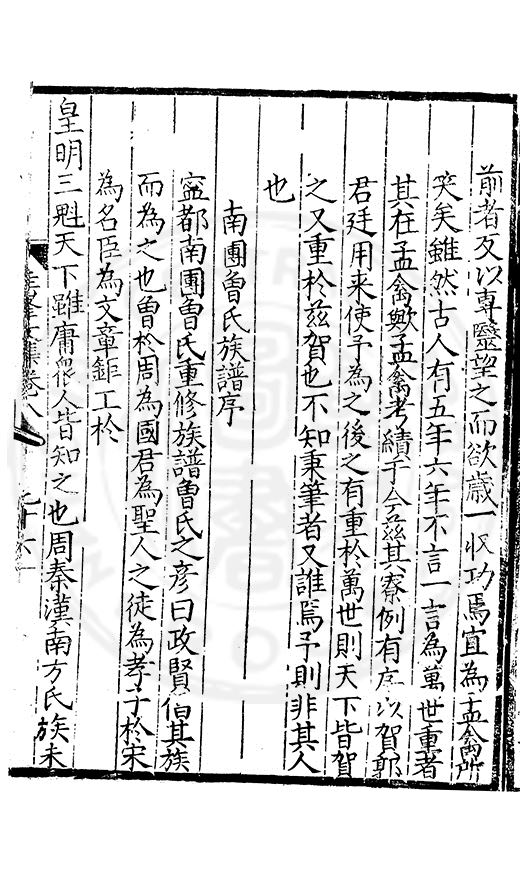 前者友以專醫望之而欲歲一收功焉宜為孟禽所
笑矣雖然古人有五年六年不言一言為萬世重者
其在孟禽歟孟禽考績于今茲其寮例有序以賀郭
君廷用來使予為之後之有重於萬世則天下皆賀
之又重於茲賀也不知秉筆者又誰焉予則非其人
也
南團魯氏族譜序
寧都南團魯氏重修族譜魯氏之彥曰政賢伯其族
而為之也魯於周為國君為聖人之徒為孝子於宋
為名臣為文章鉅工於
皇明三魁天下雖庸衆人皆知之也周秦漢南方氏族未
峯文集卷八